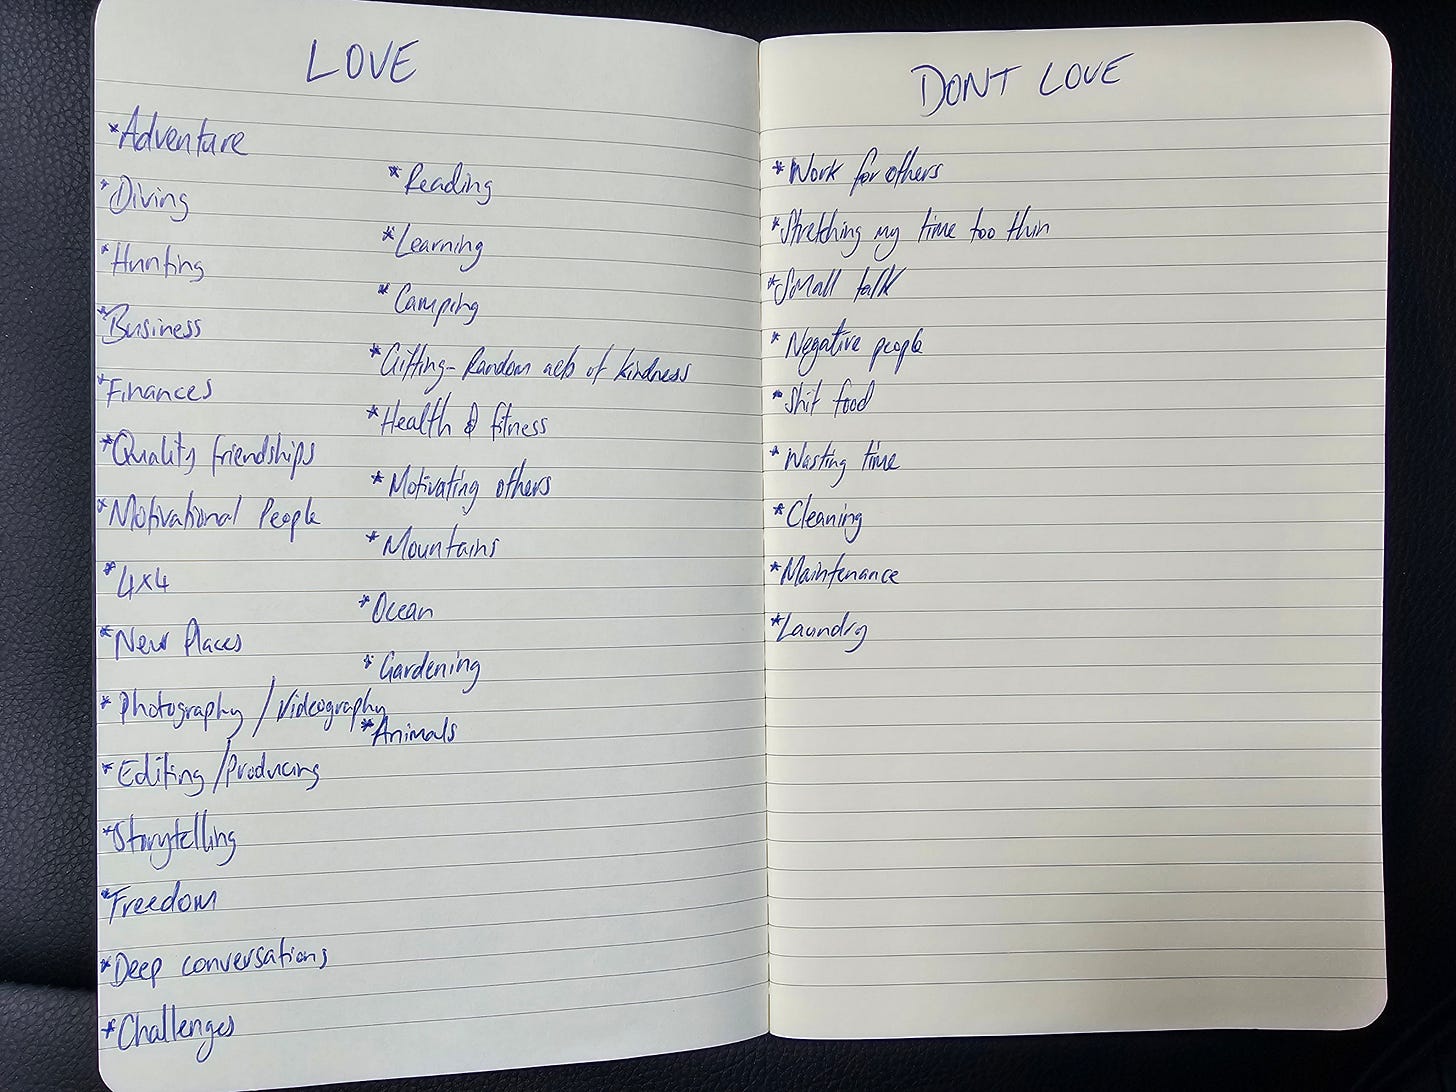 LOVE
*Adventure
*Diving
*Hunting
*Business
*Finances
*Quality friendships
*Motivational People
*4x4
*New Places
*Photography / Videography
*Editing / Producing
*Storytelling
*Freedom
*Deep conversations
*Challenges
*Reading
*Learning
*Camping
*Gifting- Random acts of kindness
*Health & fitness
*Motivating others
*Mountains
*Ocean
*Gardening
*Animals
DONT LOVE
*Work for others
*Stretching my time too thin
*Small talk
*Negative people
*Shit food
*Wasting time
*Cleaning
*Maintenance
*Laundry